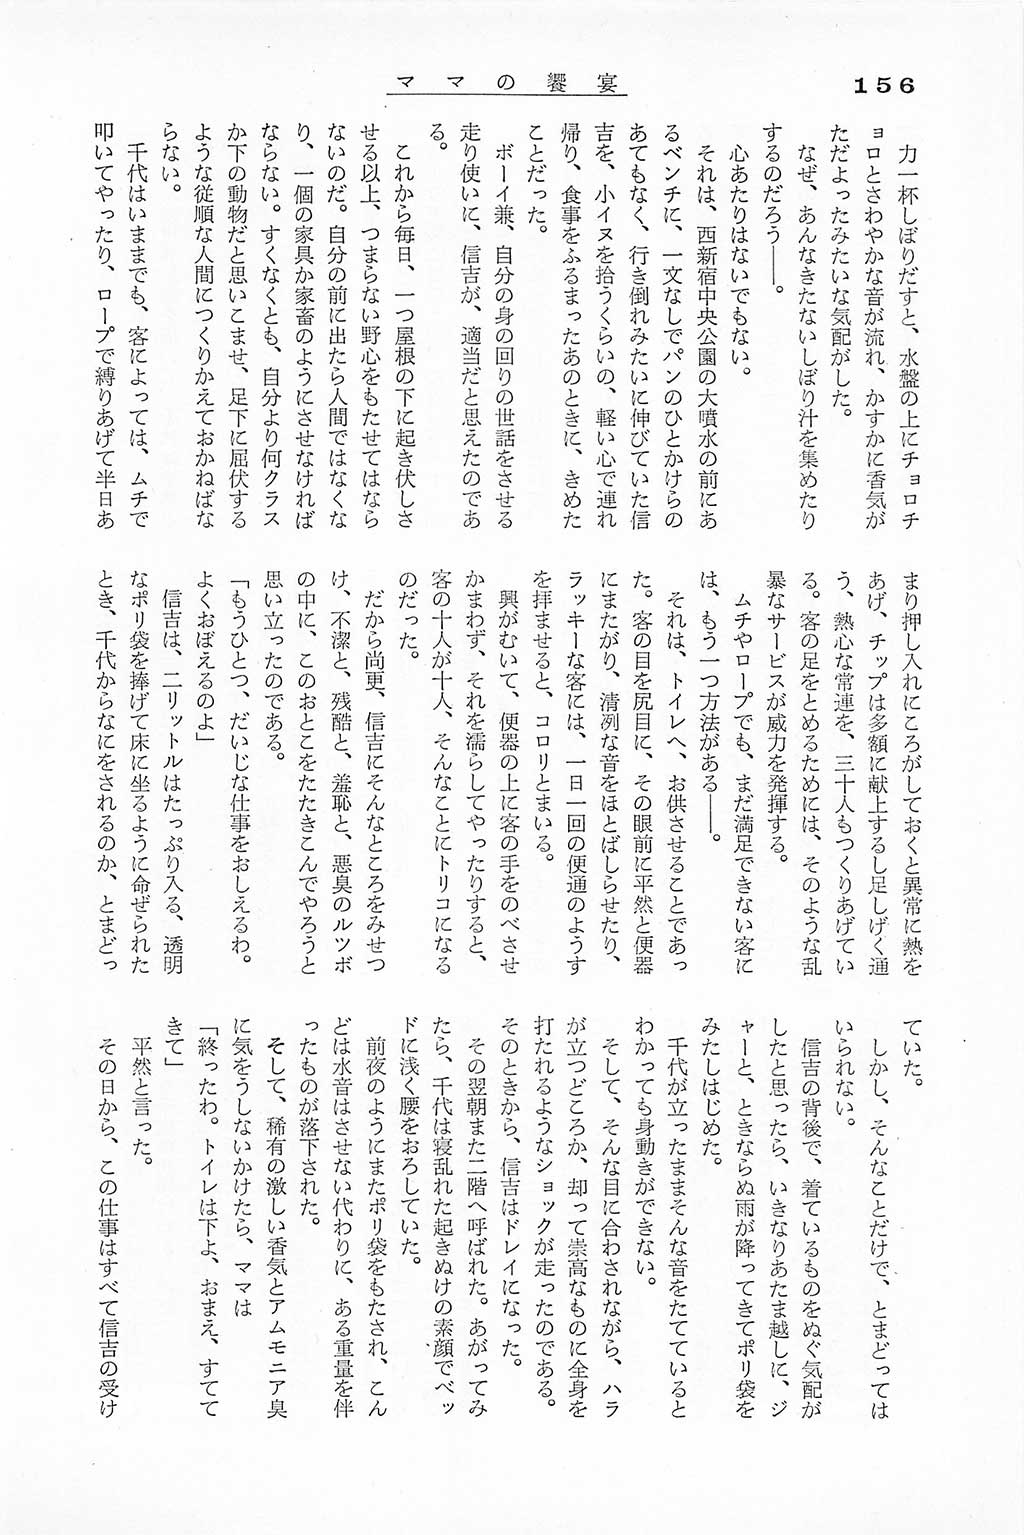 156
ママの饗宴
力一杯しぼりだすと、水盤の上にチョロチ
ョロとさわやかな音が流れ、かすかに香気が
ただよったみたいな気配がした。
なぜ、あんなきたないしぼり汁を集めたり
するのだろう――。
心あたりはないでもない。
それは、西新宿中央公園の大噴水の前にあ
るベンチに、一文なしでパンのひとかけらの
あてもなく、行き倒れみたいに伸びていた信
吉を、小イヌを拾うくらいの、軽い心で連れ
帰り、食事をふるまったあのときに、きめた
ことだった。
ボーイ兼、自分の身の回りの世話をさせる
走り使いに、信吉が、適当だと思えたのであ
る。
これから毎日、一つ屋根の下に起き伏しさ
せる以上、つまらない野心をもたせてはなら
ないのだ。自分の前に出たら人間ではなくな
り、一個の家具か家畜のようにさせなければ
ならない。すくなくとも、自分より何クラス
か下の動物だと思いこませ、足下に屈伏する
ような従順な人間につくりかえておかねばな
らない。
千代はいままでも、客によっては、ムチで
叩いてやったり、ロープで縛りあげて半日あ
まり押し入れにころがしておくと異常に熱を
あげ、チップは多額に献上するし足しげく通
う、熱心な常連を、三十人もつくりあげてい
る。客の足をとめるためには、そのような乱
暴なサービスが威力を発揮する。
ムチやロープでも、まだ満足できない客に
は、もう一つ方法がある――。
それは、トイレへ、お供させることであっ
た。客の目を尻目に、その眼前に平然と便器
にまたがり、清冽な音をほとばしらせたり、
ラッキーな客には、一日一回の便通のようす
を拝ませると、コロリとまいる。
興がむいて、便器の上に客の手をのべさせ
かまわず、それを濡らしてやったりすると、
客の十人が十人、そんなことにトリコになる
のだった。
だから尚更、信吉にそんなところをみせつ
け、不潔と、残酷と、羞恥と、悪臭のルツボ
の中に、このおとこをたたきこんでやろうと
思い立ったのである。
「もうひとつ、だいじな仕事をおしえるわ。
よくおぼえるのよ」
信吉は、二リットルはたっぷり入る、透明
なポリ袋を捧げて床に坐るように命ぜられた
とき、千代からなにをされるのか、とまどっ
ていた。
しかし、そんなことだけで、とまどっては
いられない。
信吉の背後で、着ているものをぬぐ気配が
したと思ったら、いきなりあたま越しに、ジ
ャーと、ときならぬ雨が降ってきてポリ袋を
みたしはじめた。
千代が立ったままそんな音をたてていると
わかっても身動きができない。
そして、そんな目に合わされながら、ハラ
が立つどころか、却って崇高なものに全身を
打たれるようなショックが走ったのである。
そのときから、信吉はドレイになった。
その翌朝また二階へ呼ばれた。あがってみ
たら、千代は寝乱れた起きぬけの素顔でベッ
ドに浅く腰をおろしていた。
前夜のようにまたポリ袋をもたされ、こん
どは水音はさせない代わりに、ある重量を伴
ったものが落下された。
そして、稀有の激しい香気とアムモニア臭
に気をうしないかけたら、ママは
「終ったわ。トイレは下よ、おまえ、すてて
きて」
平然と言った。
その日から、この仕事はすべて信吉の受け